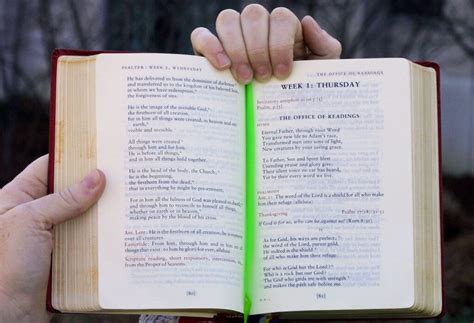 PSALTER : WEEK 1, WEDNESDAY
He has delivered us from the dominion of darkness
and transferred us to the kingdom of his beloved son,
in whom we have redemption,
the forgiveness of sins.
He is the image of the invisible God,
the firstborn of all creation,
for in him all things were created, in heaven and on
earth,
visible and invisible
All things were created
through him and for him.
He is before all things,
and in him all things hold together.
He is the head of the body, the Church,
he is the beginning,
the firstborn from the dead,
For in him all the fulness of God was pleased to dwell,
and through him to reconcile to himself all things,
whether on earth or in heaven,
making peace by the blood of his cross.
Ant. He is the firstborn of all creation, he is supreme
over all creatures.
From him, through him and in him are all
things that exist; to him be glory for ever.
Scripture reading, short responsory, intercessions,
from the Proper of Seasons.
THE OFFICE OF READINGS
WEEK 1: THURSDAY
Invitatory antiphon
Psalm,
THE OFFICE OF READINGS
HYMN
Eternal Father, through your Word
You gave new life to Adam's race,
Transformed them into sons of light,
New creatures by your saving grace.
To Father, Son and Spirit blest
Be praising and glory
PSALMODY
The word of the Lord is a shield for all who make
him their refuge.
Thanksgiving
Psalm 17
If God is for us, who can be against us?
As for God, his ways are perfect;
the word of the Lord, purest gold.
He indeed is the shield
of all who make him their refuge.
For who is God but the Lord?
Who is a rock but our God?